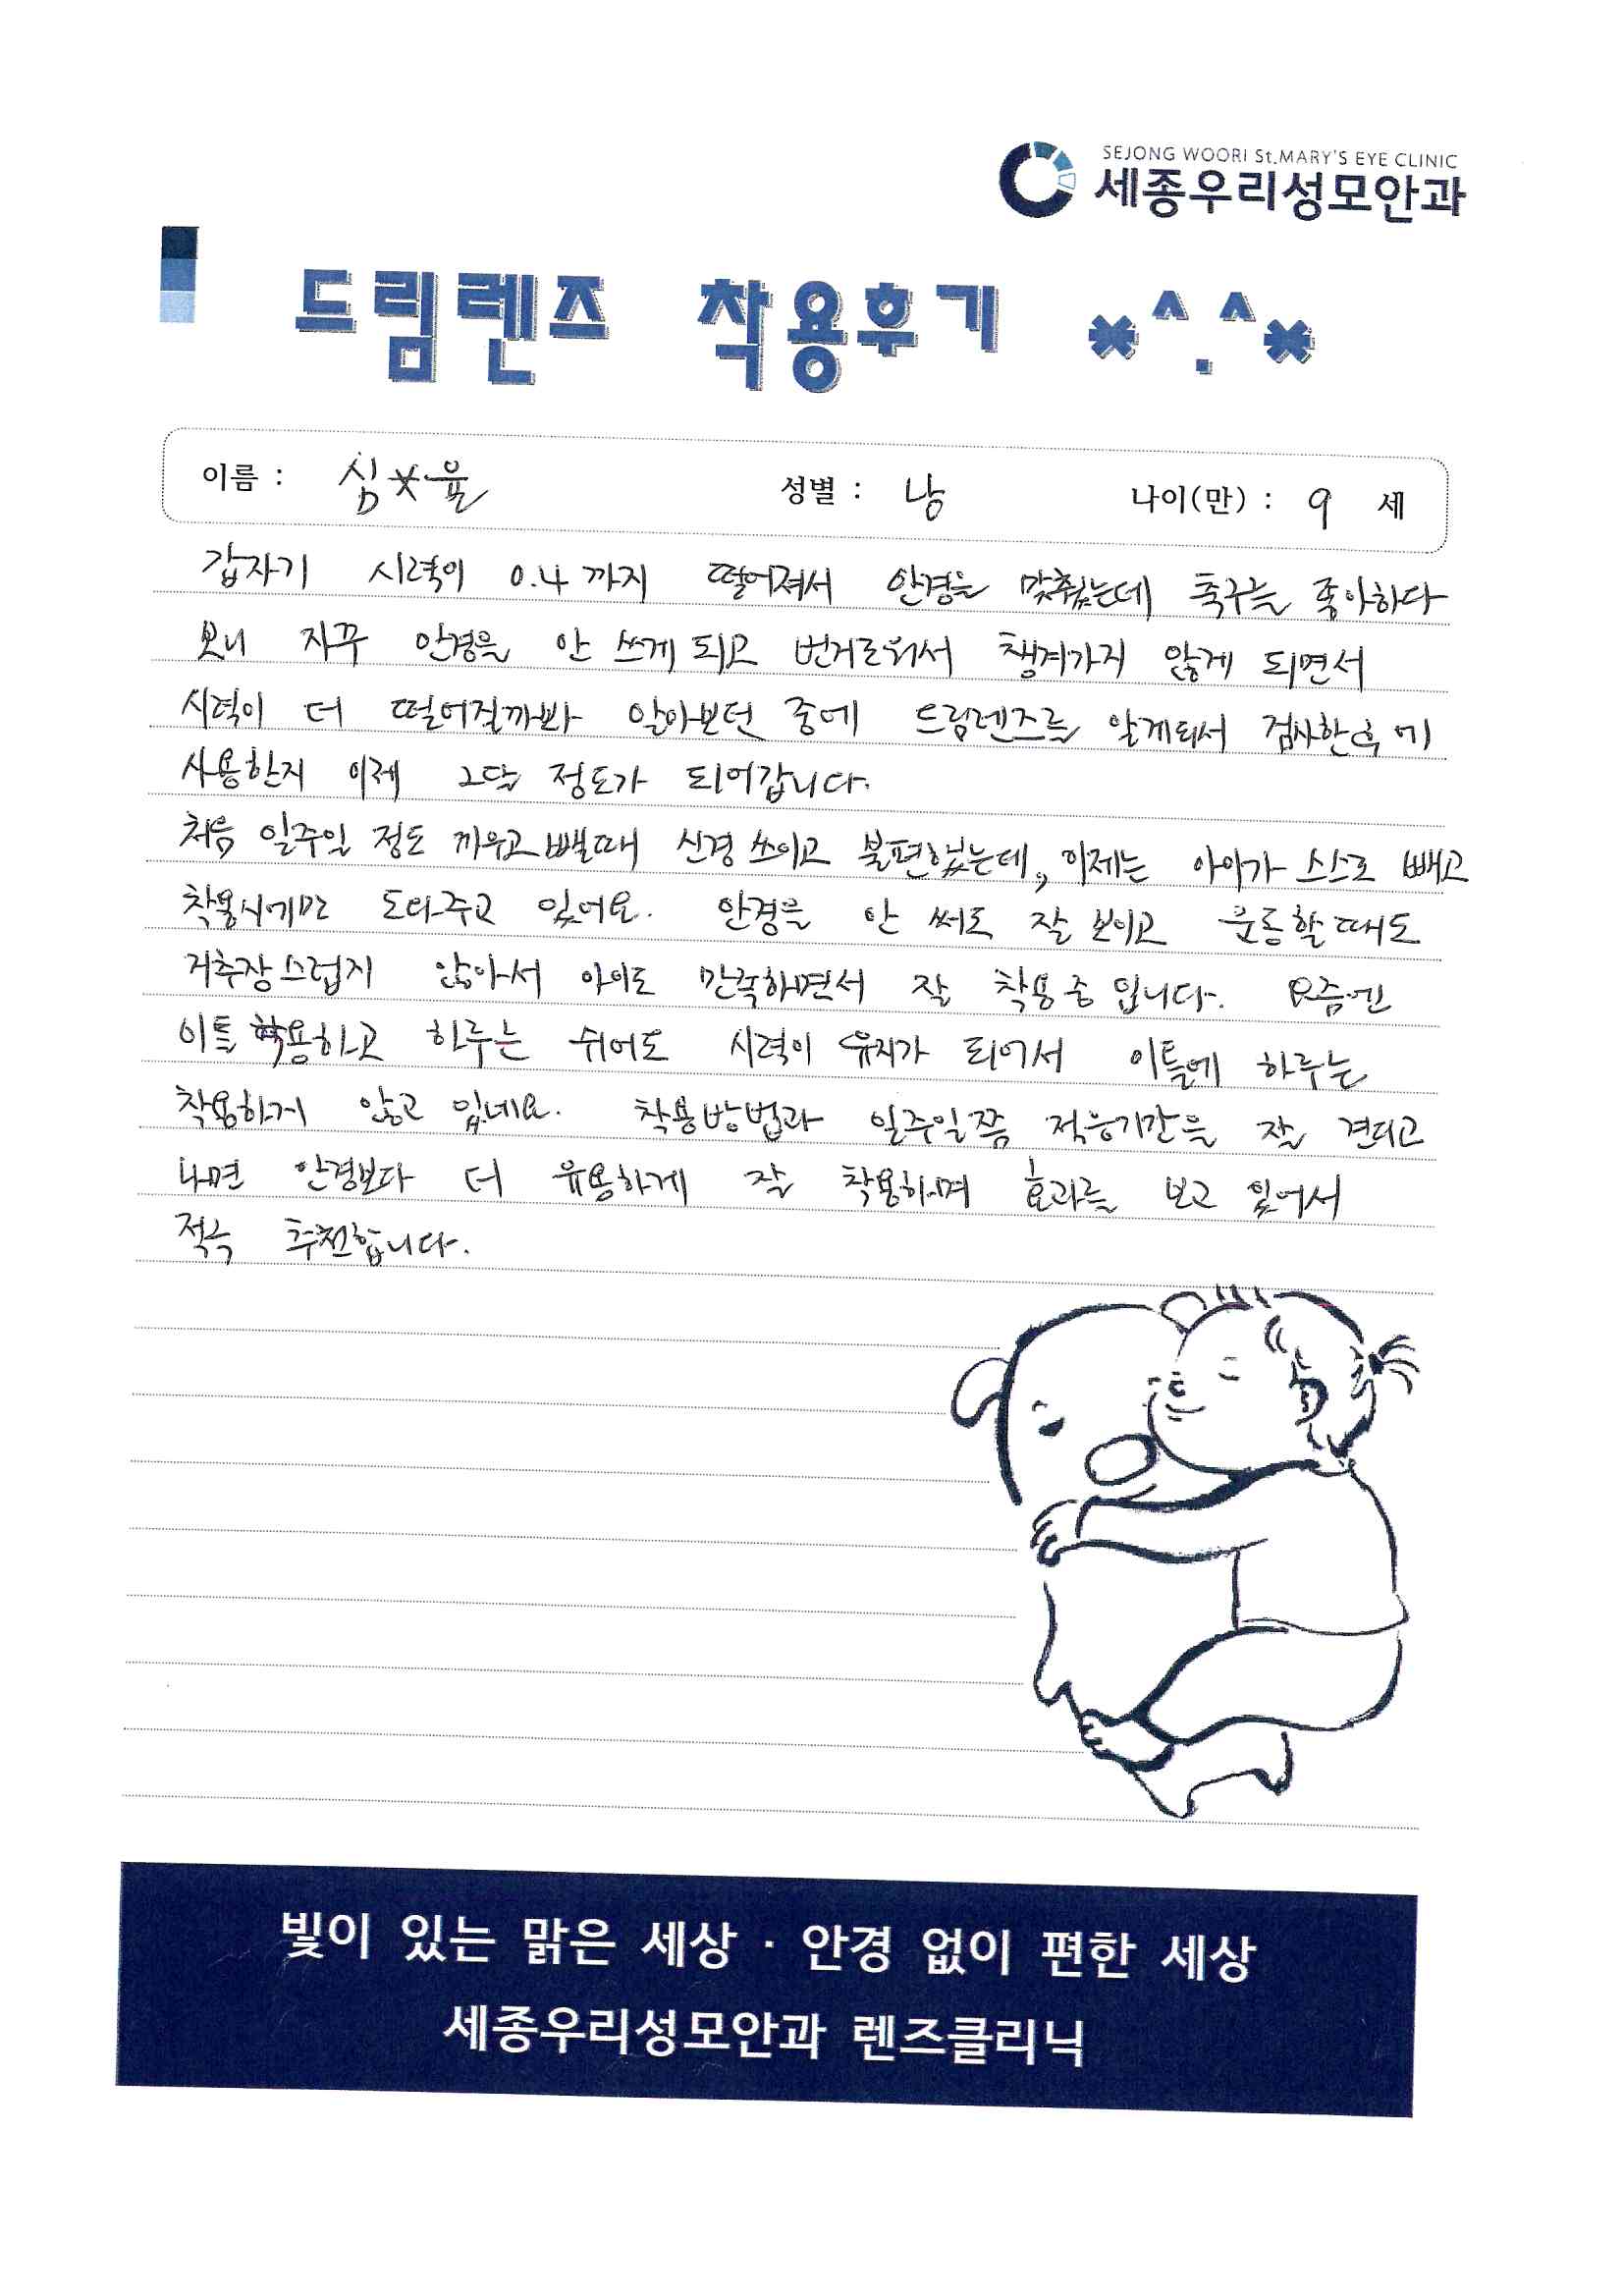 SEJONG WOORI St.MARY'S EYE CLINIC
세종우리성모안과
드림렌즈 착용후기 *^.^*
이름 : 심*율 성별 : 남 나이(만) : 9 세
갑자기 시력이 0.4까지 떨어져서 안경을 맞췄는데 축구를 좋아하다
보니 자꾸 안경을 안 쓰게 되고 번거로워서 챙겨가지 않게 되면서
시력이 더 떨어질까봐 알아보던 중에 드림렌즈를 알게되서 검사한후에
사용한지 이제 2달 정도가 되어갑니다.
처음 일주일 정도 끼우고 뺄때 신경 쓰이고 불편했는데, 이제는 아이가 스스로 빼고
착용시에만 도와주고 있어요. 안경을 안 써도 잘 보이고 운동할 때도
거추장스럽지 않아서 아이도 만족하면서 잘 착용중입니다. 요즘엔
이틀 착용하고 하루는 쉬어도 시력이 유지가 되어서 이틀에 하루는
착용하지 않고 있네요. 착용방법과 일주일쯤 적응기간을 잘 견디고
나면 안경보다 더 유용하게 잘 착용하며 효과를 보고 있어서
적극 추천합니다.
빛이 있는 맑은 세상 · 안경 없이 편한 세상
세종우리성모안과 렌즈클리닉